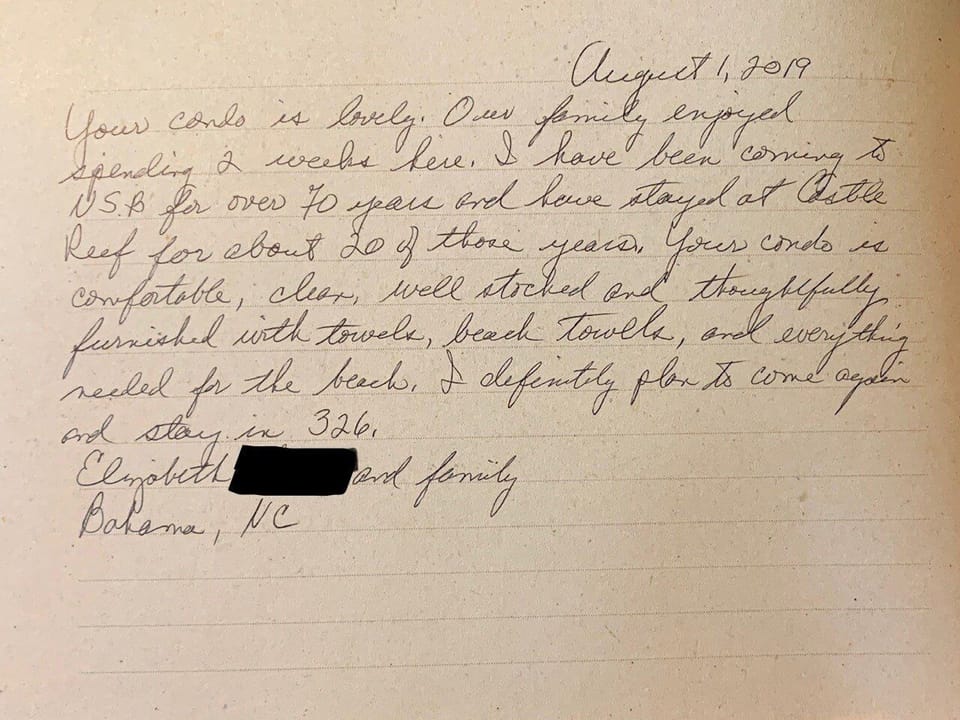 August 1, 2019
Your condo is lovely. Our family enjoyed
spending 2 weeks here. I have been coming to
NSB for over 70 years and have stayed at Castle
Reef for about 20 of those years. Your condo is
comfortable, clean, well stocked and thoughtfully
furnished with towels, beach towells, and everything
needed for the beach. I definitely plan to come again
and stay in 326.
Elizabeth and family
Bahama, NC